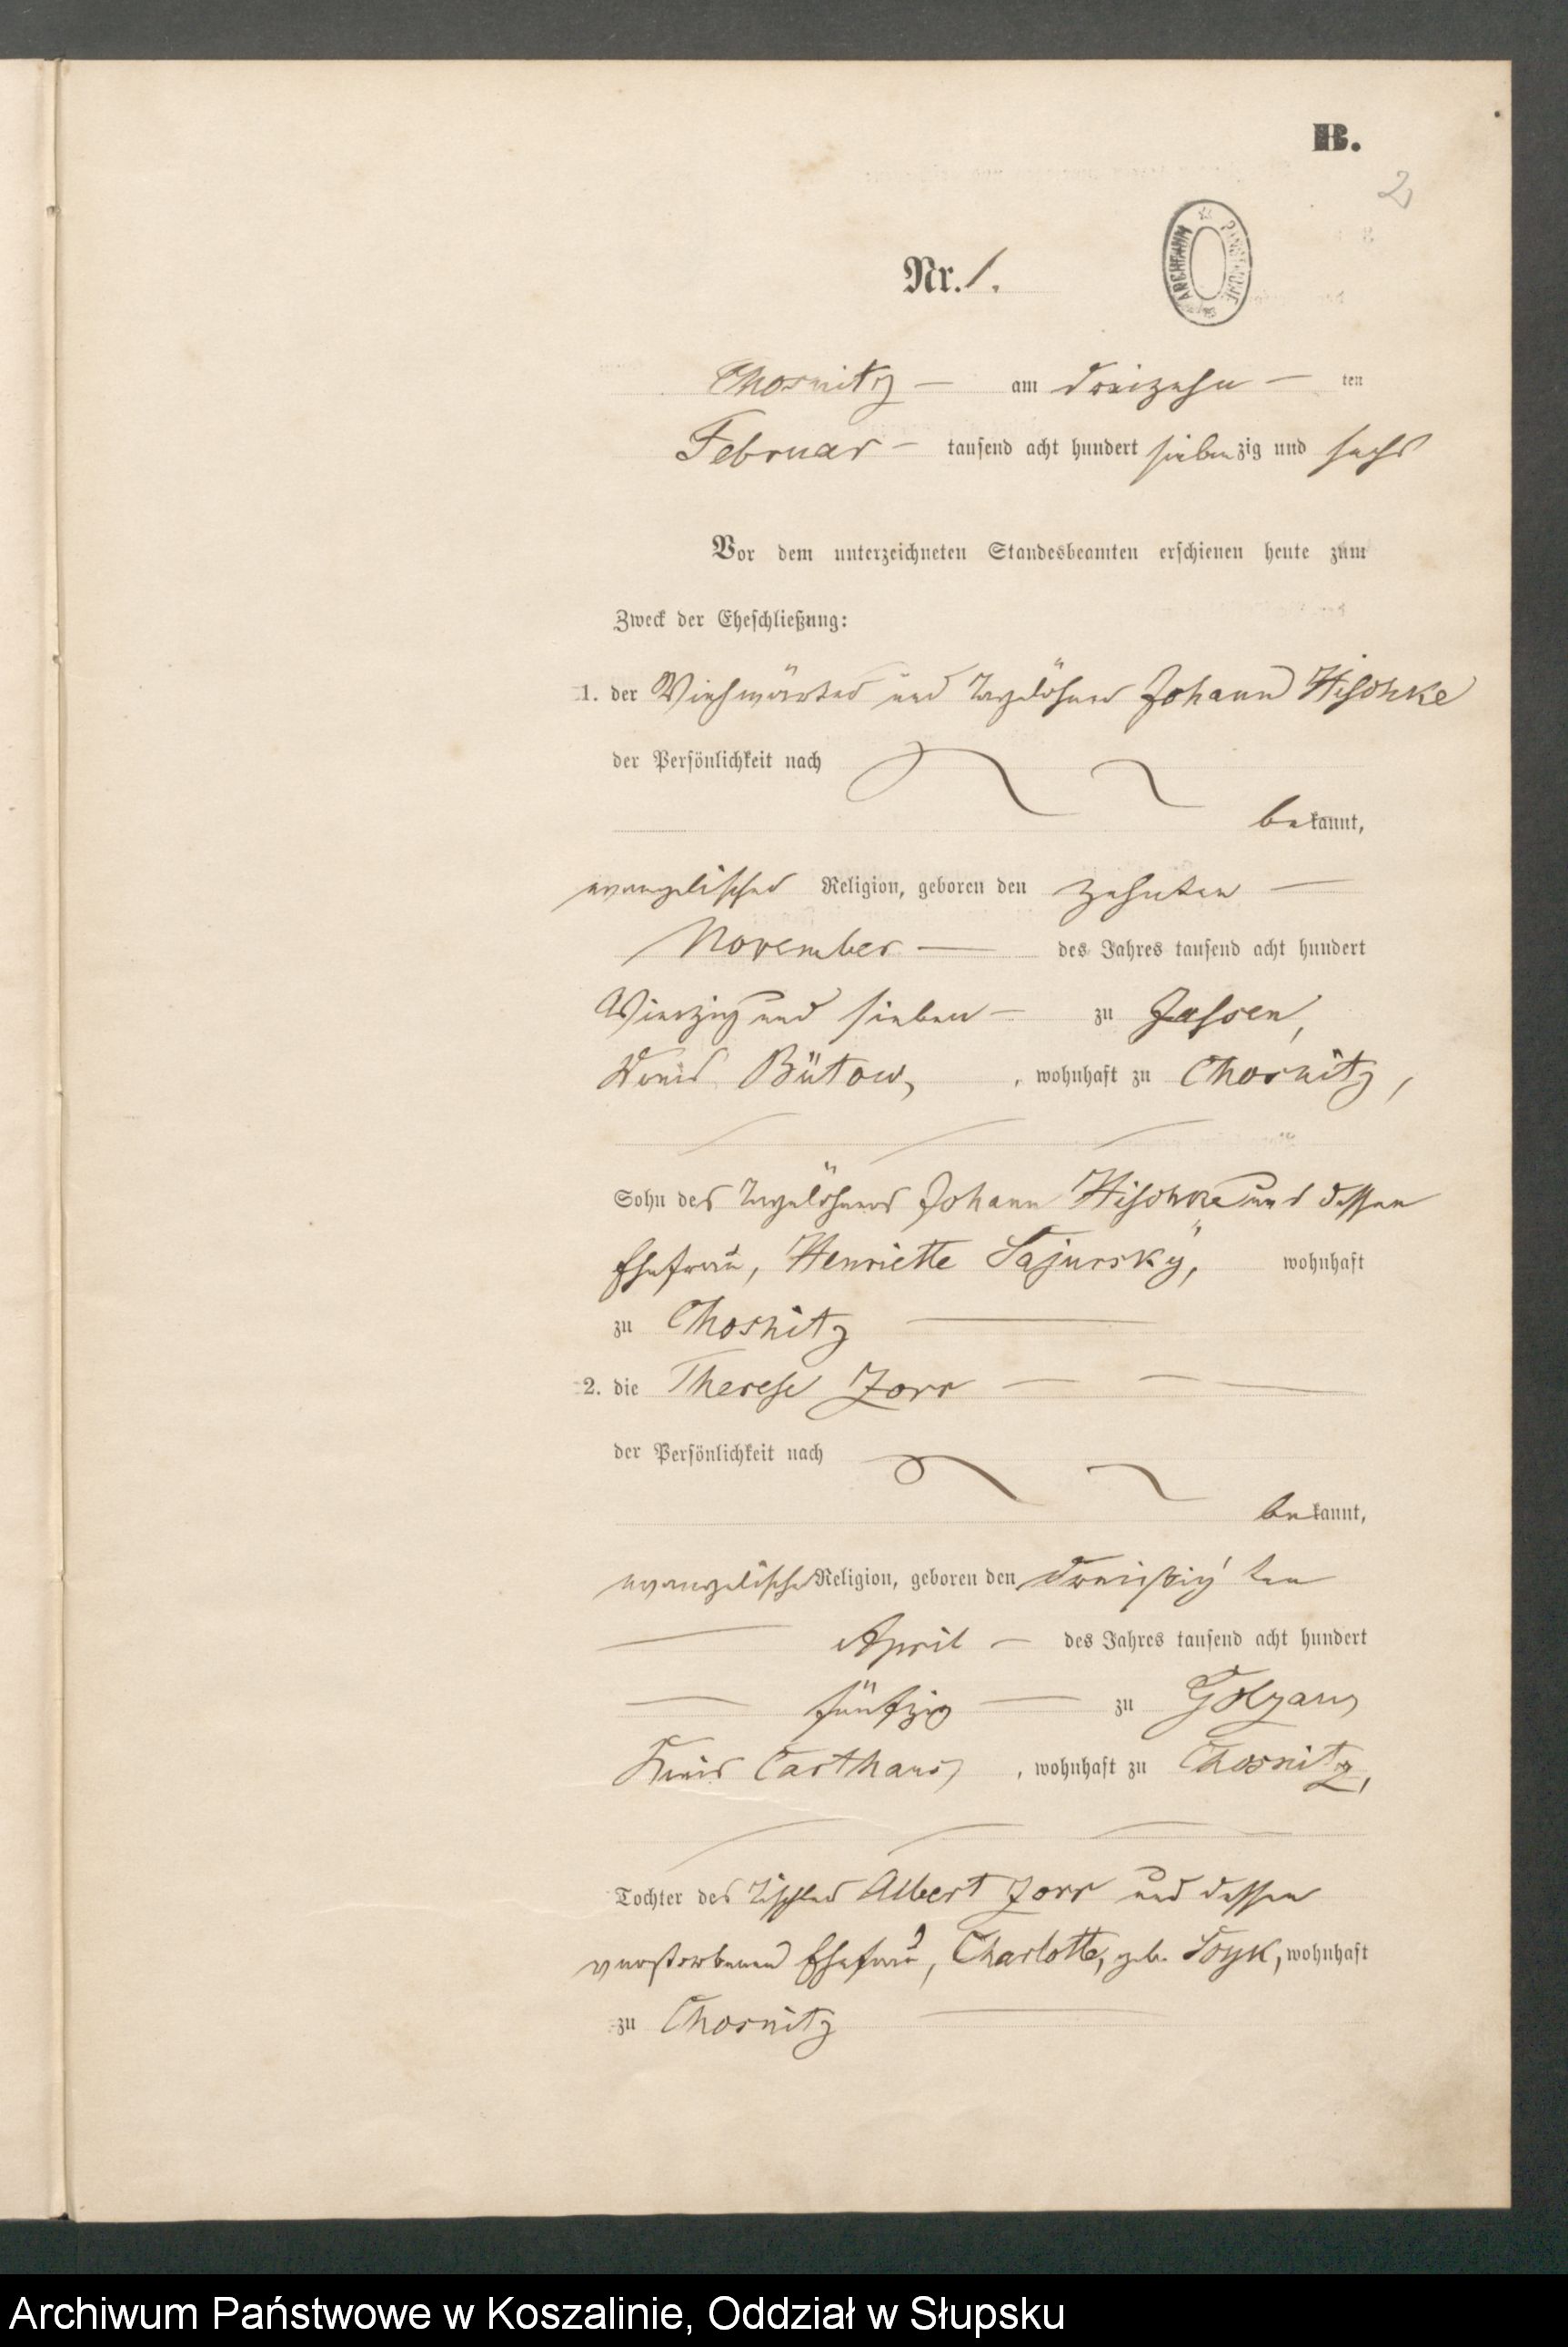 B.
2
ARCHIWUM PAŃSTWOWE
Nr. 1.
Chosnitz – am dreizehn – ten
Februar – tausend acht hundert siebenzig und sechs
Vor dem unterzeichneten Standesbeamten erschienen heute zum
Zweck der Eheschließung:
1. der Viehwärter und Tagelöhner Johann Hischke
der Persönlichkeit nach
bekannt,
evangelischer Religion, geboren den zehnten –
November – des Jahres tausend acht hundert
Vierzig und sieben – zu Jassen,
Kreis Bütow, , wohnhaft zu Chosnitz,
Sohn des Tagelöhners Johann Hischke und dessen
Ehefrau, Henriette wohnhaft
zu Chosnitz –
2. die Therese Zorr – – –
der Persönlichkeit nach
bekannt,
evangelischer Religion, geboren den dreißigsten
– April – des Jahres tausend acht hundert
– fünfzig – zu
Kreis Carthaus, , wohnhaft zu Chosnitz,
Tochter des Tischlers Albert Zorr und dessen
verstorbenen Ehefrau, Charlotte, geb. wohnhaft
zu Chosnitz –
Archiwum Państwowe w Koszalinie, Oddział w Słupsku